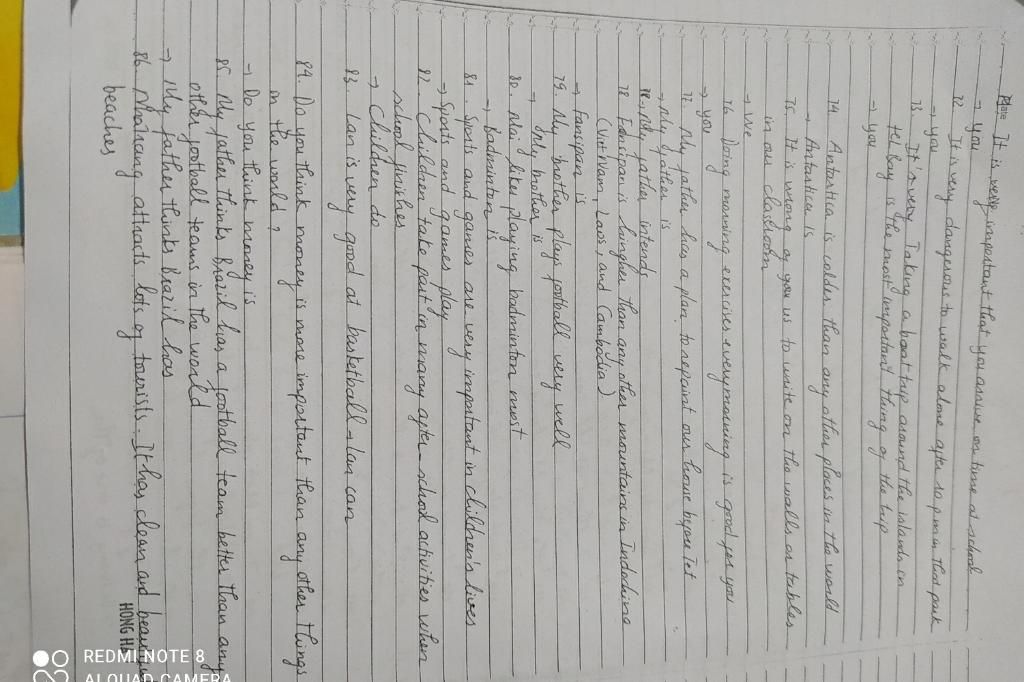 Date It is very important that you arrive on time at school
→ you
72. It is very dangerous to walk alone after 10 p.m in that park
→ you
73. It's very Taking a boat trip around the islands in
Ha Bay is the most important thing of the trip
→ you
74. Antartica is colder than any other places in the world
→ Antartica is
75. It is wrong of you us to write on the walls or tables
in our classroom
→ We
76. Doing morning exercises every morning is good for you
→ you
77. My father has a plan to repaint our house before Tet
→ My father is
My father intends
78 Fansipan is hingher than any other mountains in Indochina
(Viet Nam, Laos, and Cambodia)
→ Fansipan is
79. My brother play football very well
→ My brother is
80. Mai likes playing badminton most
→ badminton is
81. Sports and games are very important in children's lives
→ Sports and games play
82. Children take part in many after-school activities when
school finishes
→ Children do
83. Lan is very good at basketball → Lan can
84. Do you think money is more important than any other things
in the world?
→ Do you think money is
85. My father thinks Brazil has a football team better than any
other football teams in the world
→ My father thinks Brazil has
86. attracts lots of tourists. It has clean and
beaches
HONG HÀ
REDMI NOTE 8
AI QUAD CAMERA